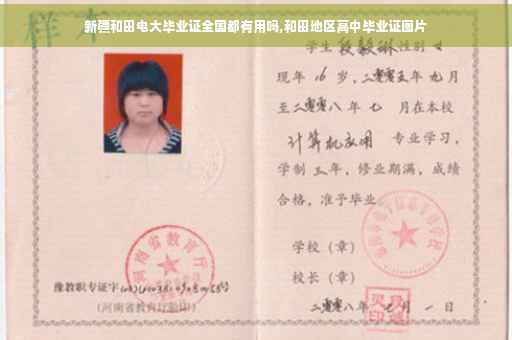 新疆和田电大毕业证全国都有用吗,和田地区高中毕业证图片
样 本
学生 段毅琳 性别 女
现年 16 岁,二零零五年 九 月
至二零零八年 七 月在本校
计算机应用 专业学习,
学制 三 年,修业期满,成绩
合格,准予毕业
学校(章)
校长(章)
河南省教育厅
豫教职专证字
(河南省教育厅验印)
二零零八年 七 月 一 日